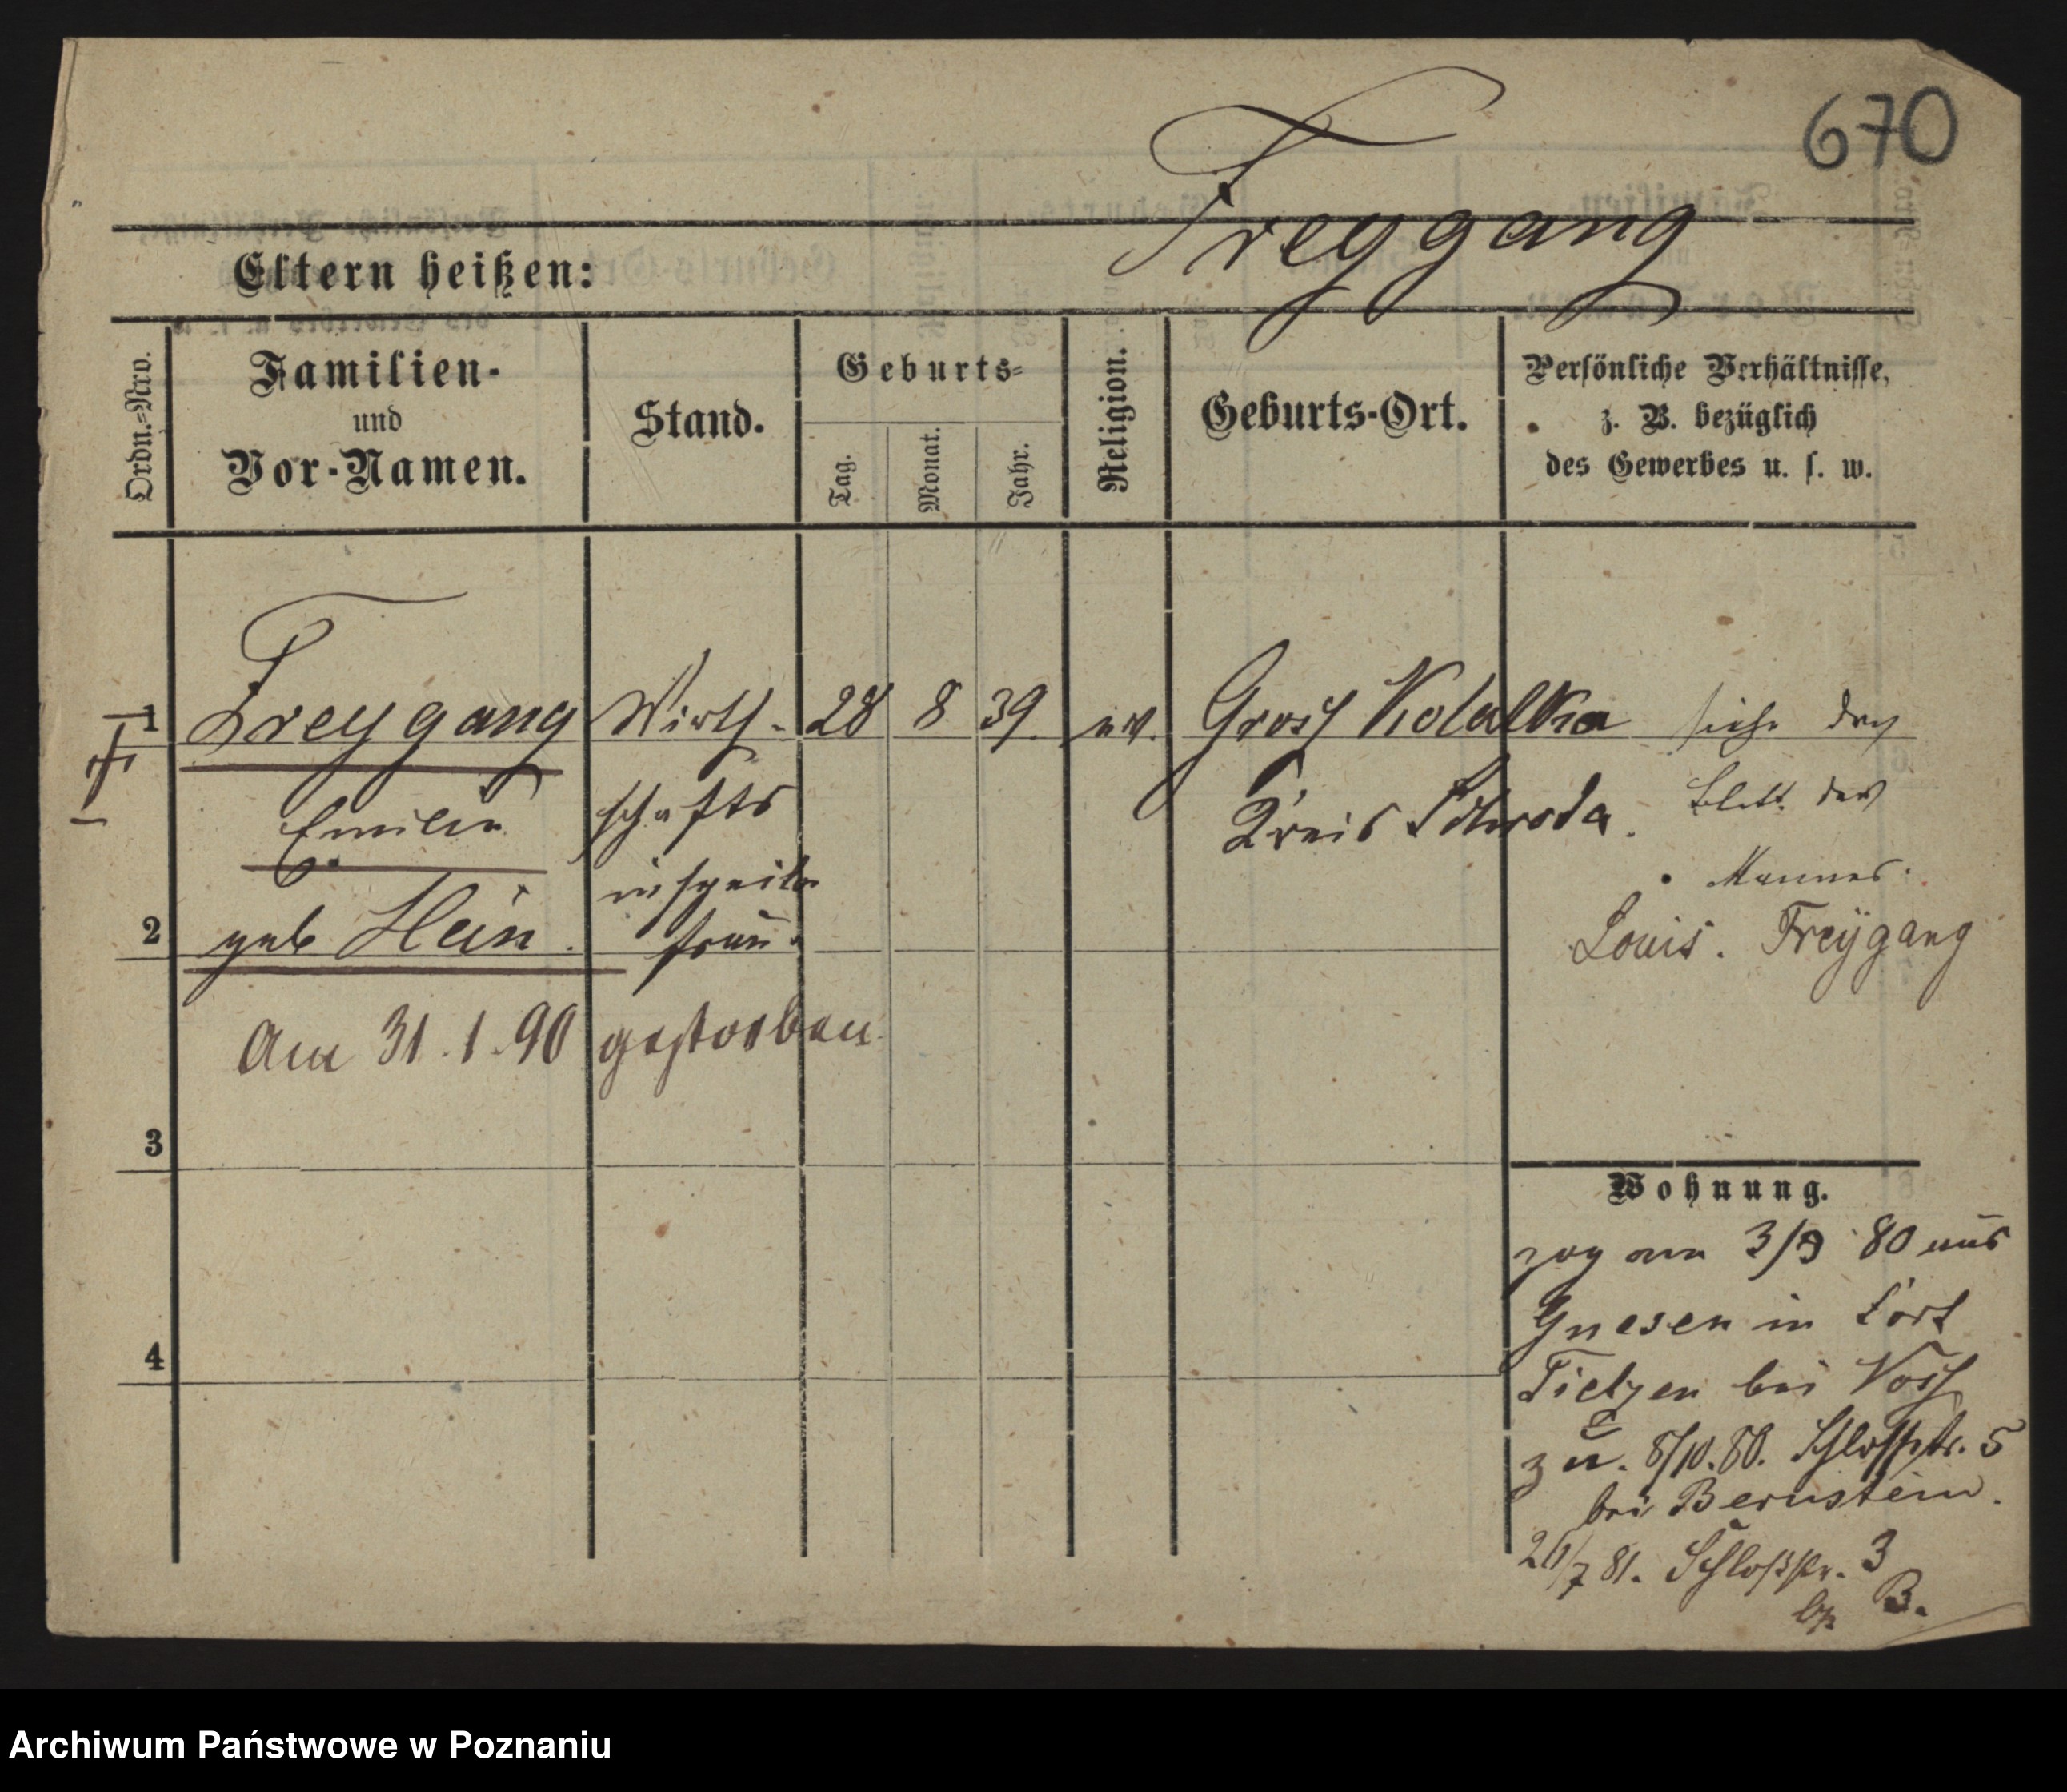 670
Freygang
Eltern heißen:
Ordn.-Nro.
Familien-
und
Vor-Namen.
Stand.
Geburts-
Tag.
Monat.
Jahr.
Religion.
Geburts-Ort.
Persönliche Verhältnisse,
z. B. bezüglich
des Gewerbes u. s. w.
1 Freygang Wirth- 28 8 39. ev. Gross siehe
Emilie schafts Kreis Schroda. Blatt des
Mannes.
2 geb Hein. frau. Louis. Freÿgang
Am 31.1.90 gestorben
3
Wohnung.
zog am 3/9 80 aus
4
Gnesen in Fort
Tietzen bei Voss
zu. 8/10.80. Schlossstr. 5
bei Bernstein.
26/7 81. Schloßstr. 3
B.
Archiwum Państwowe w Poznaniu